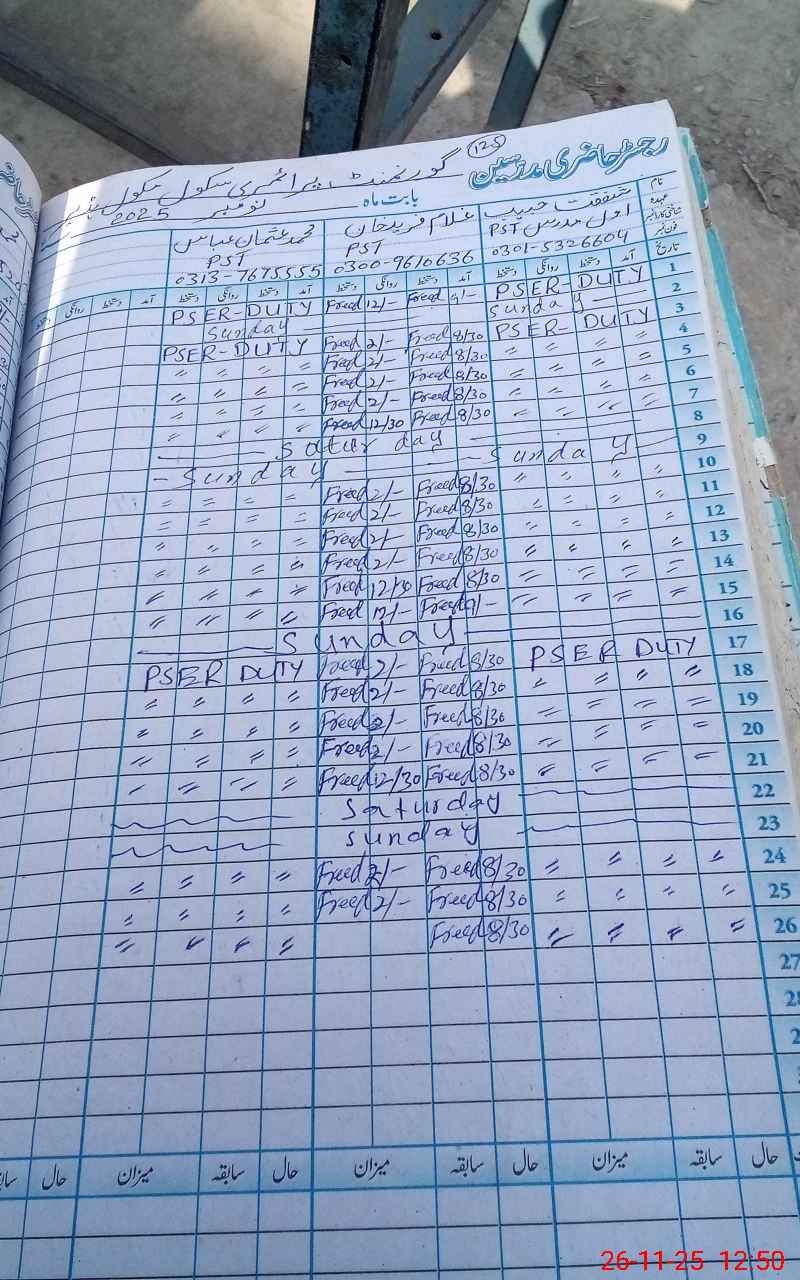 رجسٹر حاضری مدرسین
125
گورنمنٹ پرائمری سکول
بابت ماہ نومبر 2025
نام
عہدہ
فون نمبر
تاریخ
شفقت حبیب
اول مدرس PST
0301-5326604
غلام فرید خان
PST
0300-9610636
محمد عثمان عباس
PST
0313-7675555
آمد دستخط روانگی دستخط آمد دستخط روانگی دستخط آمد دستخط روانگی دستخط آمد دستخط روانگی
1 PSER-DUTY Freed 9/- Freed 12/- PSER-DUTY
2 Sunday Sunday
3 PSER-DUTY Freed 8/30 Freed 2/- PSER-DUTY
4 〃 〃 〃 〃 Freed 8/30 Freed 2/- 〃 〃 〃 〃
5 〃 〃 〃 〃 Freed 8/30 Freed 2/- 〃 〃 〃 〃
6 〃 〃 〃 〃 Freed 8/30 Freed 2/- 〃 〃 〃 〃
7 〃 〃 〃 〃 Freed 8/30 Freed 12/30 〃 〃 〃 〃
8 Saturday
9 Sunday Sunday
10 〃 〃 〃 〃 Freed 8/30 Freed 2/- 〃 〃 〃 〃
11 〃 〃 〃 〃 Freed 8/30 Freed 2/- 〃 〃 〃 〃
12 〃 〃 〃 〃 Freed 8/30 Freed 2/- 〃 〃 〃 〃
13 〃 〃 〃 〃 Freed 8/30 Freed 2/- 〃 〃 〃 〃
14 〃 〃 〃 〃 Freed 8/30 Freed 12/30 〃 〃 〃 〃
15 〃 〃 〃 〃 Freed 9/- Freed 12/- 〃 〃 〃 〃
16 Sunday
17 PSER DUTY Freed 8/30 Freed 2/- PSER DUTY
18 〃 〃 〃 〃 Freed 8/30 Freed 2/- 〃 〃 〃 〃
19 〃 〃 〃 〃 Freed 8/30 Freed 2/- 〃 〃 〃 〃
20 〃 〃 〃 〃 Freed 8/30 Freed 2/- 〃 〃 〃 〃
21 〃 〃 〃 〃 Freed 8/30 Freed 12/30 〃 〃 〃 〃
22 Saturday
23 Sunday
24 〃 〃 〃 〃 Freed 8/30 Freed 2/- 〃 〃 〃 〃
25 〃 〃 〃 〃 Freed 8/30 Freed 2/- 〃 〃 〃 〃
26 〃 〃 〃 〃 Freed 8/30 〃 〃 〃 〃
27
حال سابقہ میزان حال سابقہ میزان حال سابقہ میزان حال
26-11-25 12:50